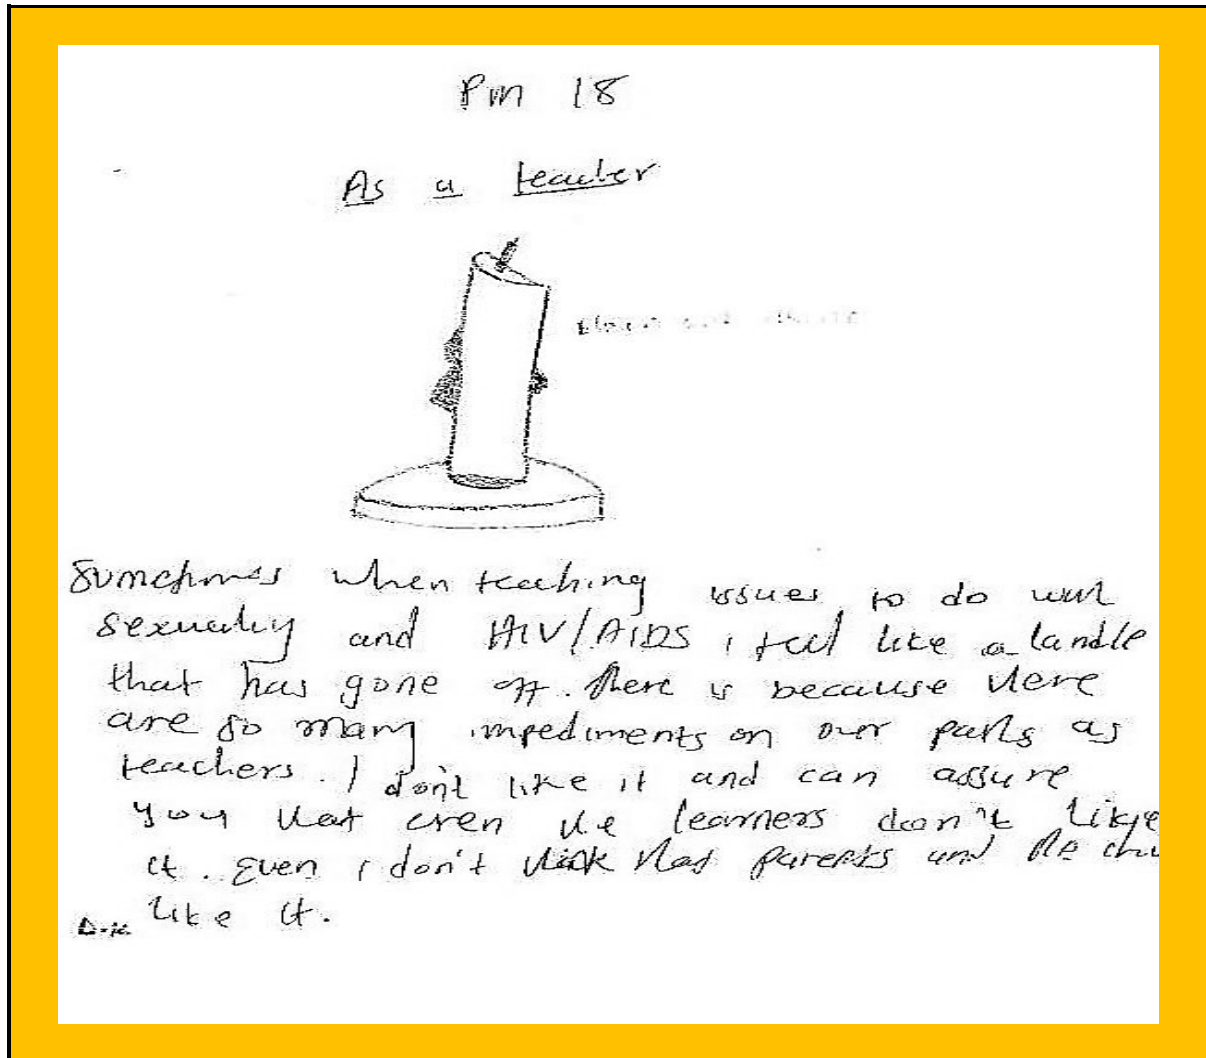 Pm 18
As a teacher
Sometimes when teaching issues to do with
sexuality and HIV/AIDS i feel like a candle
that has gone off. There is because there
are so many impediments on our parts as
teachers. I don't like it and can assure
you that even the learners don't like
it. Even i don't think that parents and the
like it.